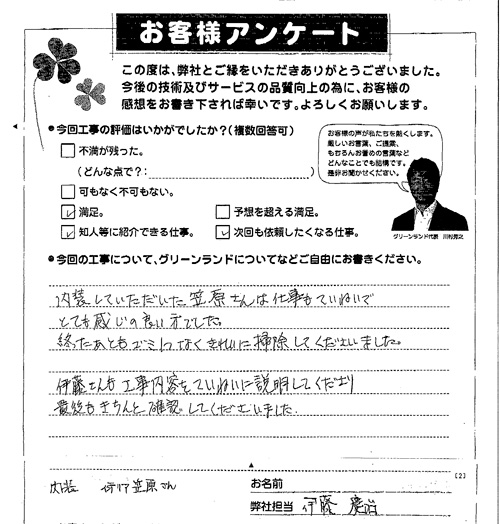 お客様アンケート
この度は、弊社とご縁をいただきありがとうございました。
今後の技術及びサービスの品質向上の為に、お客様の
感想をお書き下されば幸いです。よろしくお願いします。
●今回工事の評価はいかがでしたか?(複数回答可)
不満が残った。
(どんな点で?:                    )
可もなく不可もない。
満足。
予想を超える満足。
知人等に紹介できる仕事。
次回も依頼したくなる仕事。
お客様の声が私たちを動くします。
厳しいお言葉、ご提案、
もちろんお誉めの言葉など
どんなことでも結構です。
是非お聞かせください。
グリーンランド代表
●今回の工事について、グリーンランドについてなどご自由にお書きください。
内装していただいた笠原さんは仕事もていねいで
とても感じの良い方でした。
終ったあともゴミ1つなくきれいに掃除してくださいました。
伊藤さんも工事内容をていねいに説明してくださり
最後もきちんと確認してくださいました。
内装 笠原さん
お名前
弊社担当 伊藤